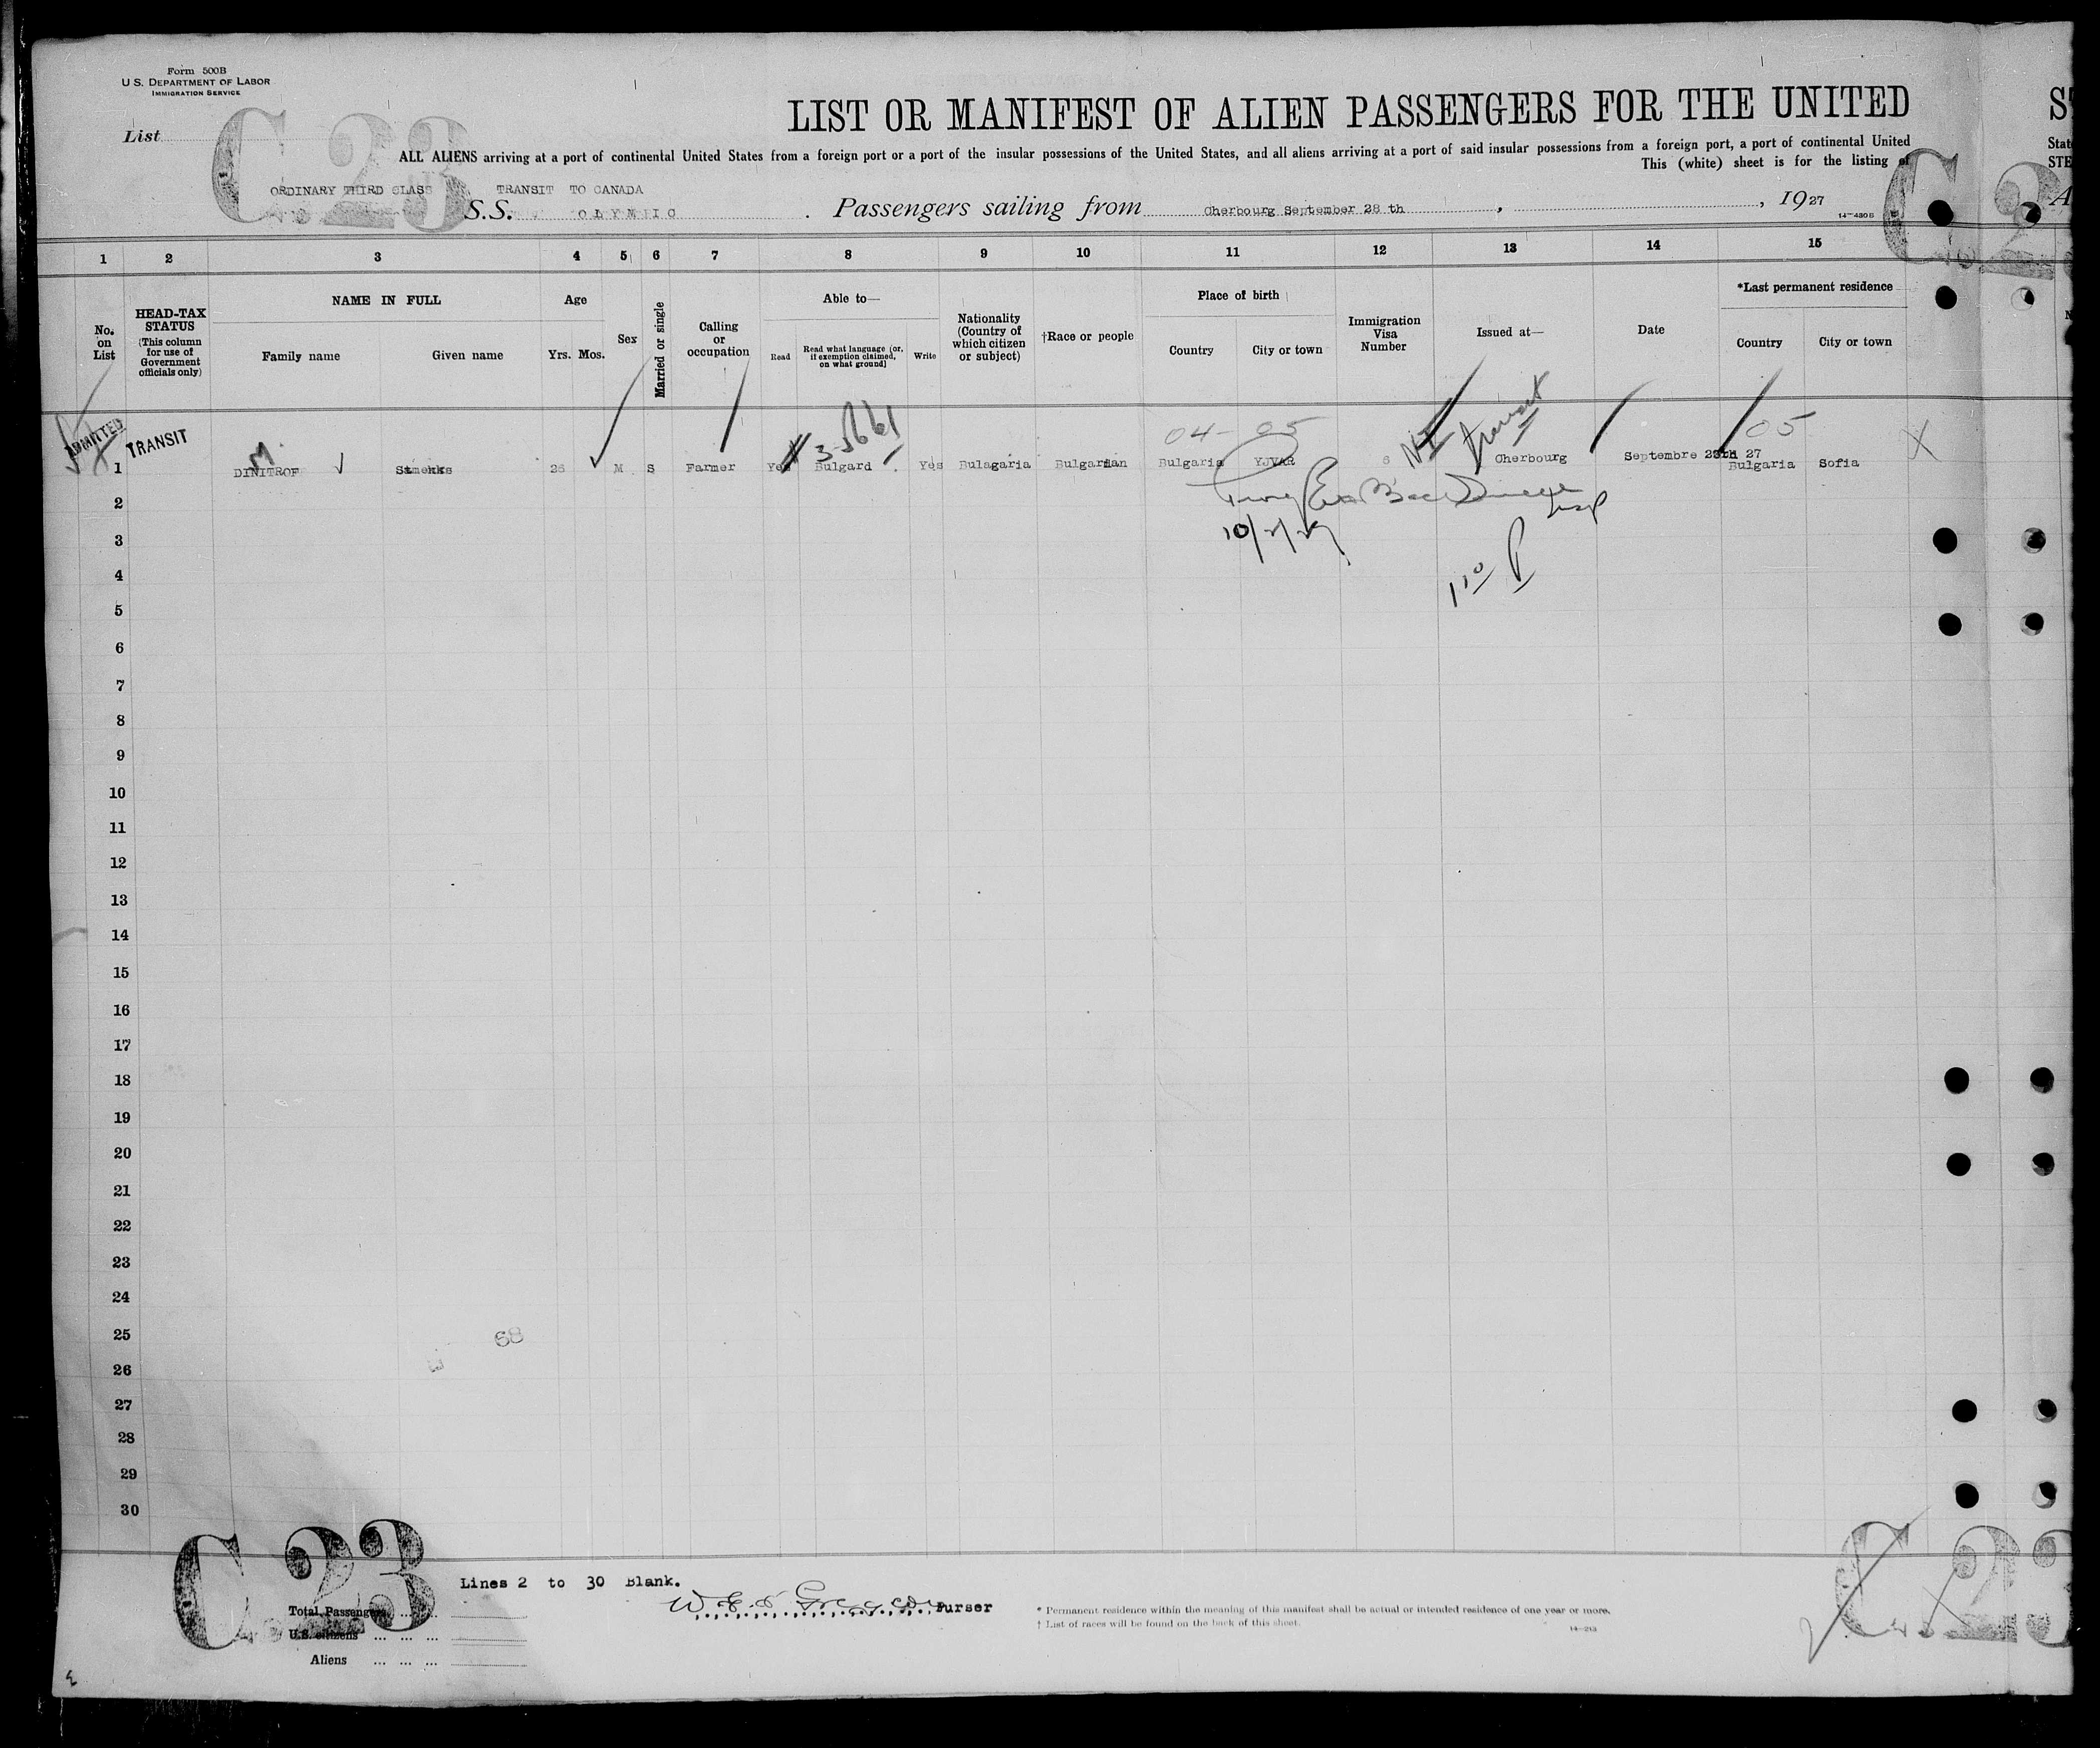 Form 500B
U.S. DEPARTMENT OF LABOR
IMMIGRATION SERVICE
List
C.23
LIST OR MANIFEST OF ALIEN PASSENGERS FOR THE UNITED
ALL ALIENS arriving at a port of continental United States from a foreign port or a port of the insular possessions of the United States, and all aliens arriving at a port of said insular possessions from a foreign port, a port of continental United
State
This (white) sheet is for the listing of
STE
ORDINARY THIRD CLASS TRANSIT TO CANADA
S.S. OLYMPIC . Passengers sailing from Cherbourg September 28 th , , 1927
14-430B
C.2
A
1 2 3 4 5 6 7 8 9 10 11 12 13 14 15
No. on List
HEAD-TAX STATUS (This column for use of Government officials only)
NAME IN FULL
Family name Given name
Age
Yrs. Mos.
Sex
Married or single
Calling or occupation
Able to—
Read
Read what language (or, if exemption claimed, on what ground)
Write
Nationality (Country of which citizen or subject)
†Race or people
Place of birth
Country City or town
Immigration Visa Number
Issued at—
Date
*Last permanent residence
Country City or town
ADMITTED TRANSIT
M
04- 05
NI transit
05
X
1 DINITROF 26 M S Farmer Yes Bulgard . Yes Bulagaria Bulgarian Bulgaria YJVAR 6 Cherbourg Septembre 27 Bulgaria Sofia
2
3
4
5
6
7
8
9
10
11
12
13
14
15
16
17
18
19
20
21
22
23
24
25
68
26
27
28
29
30
C.23
Lines 2 to 30 Blank.
Purser
Total Passengers ... ...
U.S. citizens ... ... ...
Aliens ... ... ...
* Permanent residence within the meaning of this manifest shall be actual or intended residence of one year or more.
† List of races will be found on the back of this sheet.
14-213
C.23